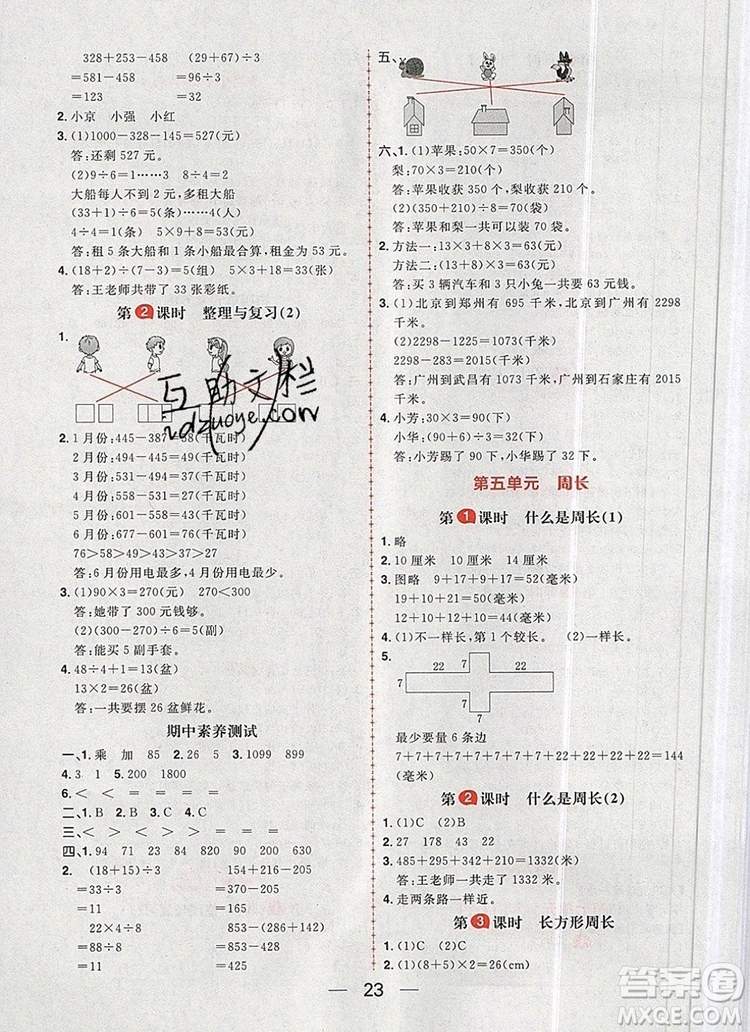 328+253-458 (29+67)÷3
=581-458 =96÷3
=123 =32
2. 小京 小强 小红
3. (1)1000-328-145=527(元)
答:还剩 527 元。
(2)9÷6=1……3 8÷4=2
大船每人不到 2 元,多租大船
(33+1)÷6=5(条)……4(人)
4÷4=1(条) 5×9+8=53(元)
答:租 5 条大船和 1 条小船最合算,租金为 53 元。
4. (18+2)÷(7-3)=5(组) 5×3+18=33(张)
答:王老师带了 33 张彩纸。
第2课时 整理与复习(2)
1.
2. 1 月份:445-387=58(千瓦时)
2 月份:482-445=37(千瓦时)
3 月份:509-482=27(千瓦时)
4 月份:542-509=33(千瓦时)
5 月份:601-542=59(千瓦时)
6 月份:677-601=76(千瓦时)
76>58>43>37>33>27
答:6 月份用电最多,4 月份用电最少。
3. (1)90×3=270(元) 270<300
答:她带了 300 元钱够。
(2)(300-270)÷6=5(副)
答:能买 5 副手套。
4. 48÷4+1=13(盆)
13×2=26(盆)
答:一共要摆 26 盆鲜花。
期中素养测试
一、1. 乘 加 85 2. 26 5 3. 1099 899
4. 3 1 5. 200 1800
6. < < = = = <
二、1. B 2. B 3. C 4. C
三、< < > > > > < =
四、1. 94 71 23 84 820 90 200 630
2. (18+15)÷3 154+216-205
=33÷3 =370-205
=11 =165
22×4÷8 853-(286+142)
=88÷8 =853-428
=11 =425
五、
六、1. (1)苹果:50×7=350(个)
梨:70×3=210(个)
答:苹果收获 350 个,梨收获 210 个。
(2)(350+210)÷8=70(袋)
答:苹果和梨一共可以装 70 袋。
2. 方法一:13×3+8×3=63(元)
方法二:(13+8)×3=63(元)
答:买 3 只大熊和 3 只小兔一共要花 63 元钱。
3. (1)北京到郑州有 695 千米,北京到广州有 2298
千米。
(2)2298-1225=1073(千米)
2298-283=2015(千米)
答:广州到武昌有 1073 千米,广州到石家庄有
2015 千米。
4. 小芳:30×3=90(个)
小华:(90+6)÷3=32(个)
答:小芳踢了 90 下,小华踢了 32 下。
第五单元 周长
第1课时 什么是周长(1)
1. 略
2. 10 厘米 10 厘米 14 厘米
3. 图略 9+17+9+17=52(毫米)
19+10+21=50(毫米)
12+10+12+10=44(毫米)
4. (1)不一样长,第 1 个较长。 (2)一样长。
5.
22 7 22
7 7
7
最少要量 6 条边
7+7+7+7+7+7+7+7+22+22+22+22=144
(毫米)
第2课时 什么是周长(2)
1. (1)C (2)B
2. 27 178 43 22
3. 485+295+210+342=1332(米)
答:王老师一共走了 1332 米。
4. 走两条路一样近。
第3课时 长方形周长
1. (1)C (2)C
2. (1)(8+5)×2=26(cm)
23
互助文栏
zdzuoye.com
答案圈
MXQE.COM